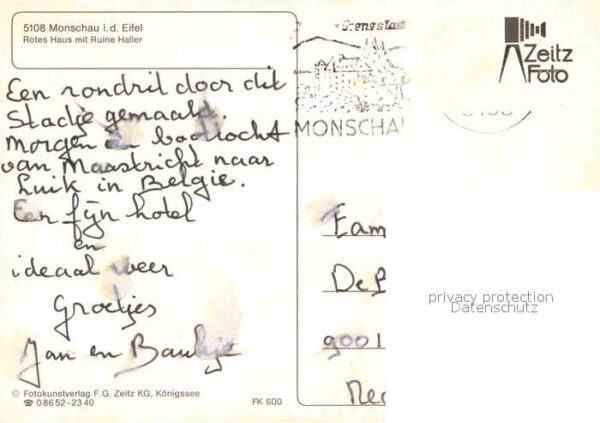 5108 Monschau i. d. Eifel
Rotes Haus mit Ruine Haller
Een rondrit door dit
Stadje gemaakt.
Morgen een boottocht
van Maastricht naar
Luik in Belgie.
Een fijn hotel
en
ideaal weer
Groetjes
Jan en Baukje
© Fotokunstverlag F. G. Zeitz KG, Königssee
☎ 0 86 52 - 23 40
FK 600
MONSCHA
Zeitz
Foto
Fam
De
9001
privacy protection
Datenschutz